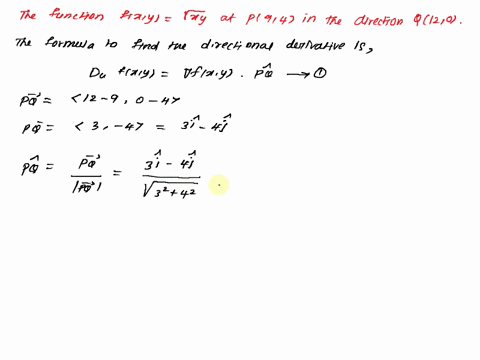 The function f(x,y) = √xy at P(9,4) in the direction Q(12,0).
The formula to find the directional derivative is,
Du f(x,y) = ∇f(x,y) . P̂Q → ①
PQ⃗ = <12-9, 0-4>
PQ⃗ = <3, -4> = 3î - 4ĵ
P̂Q = PQ⃗ / |PQ⃗| = (3î - 4ĵ) / √(3²+4²)